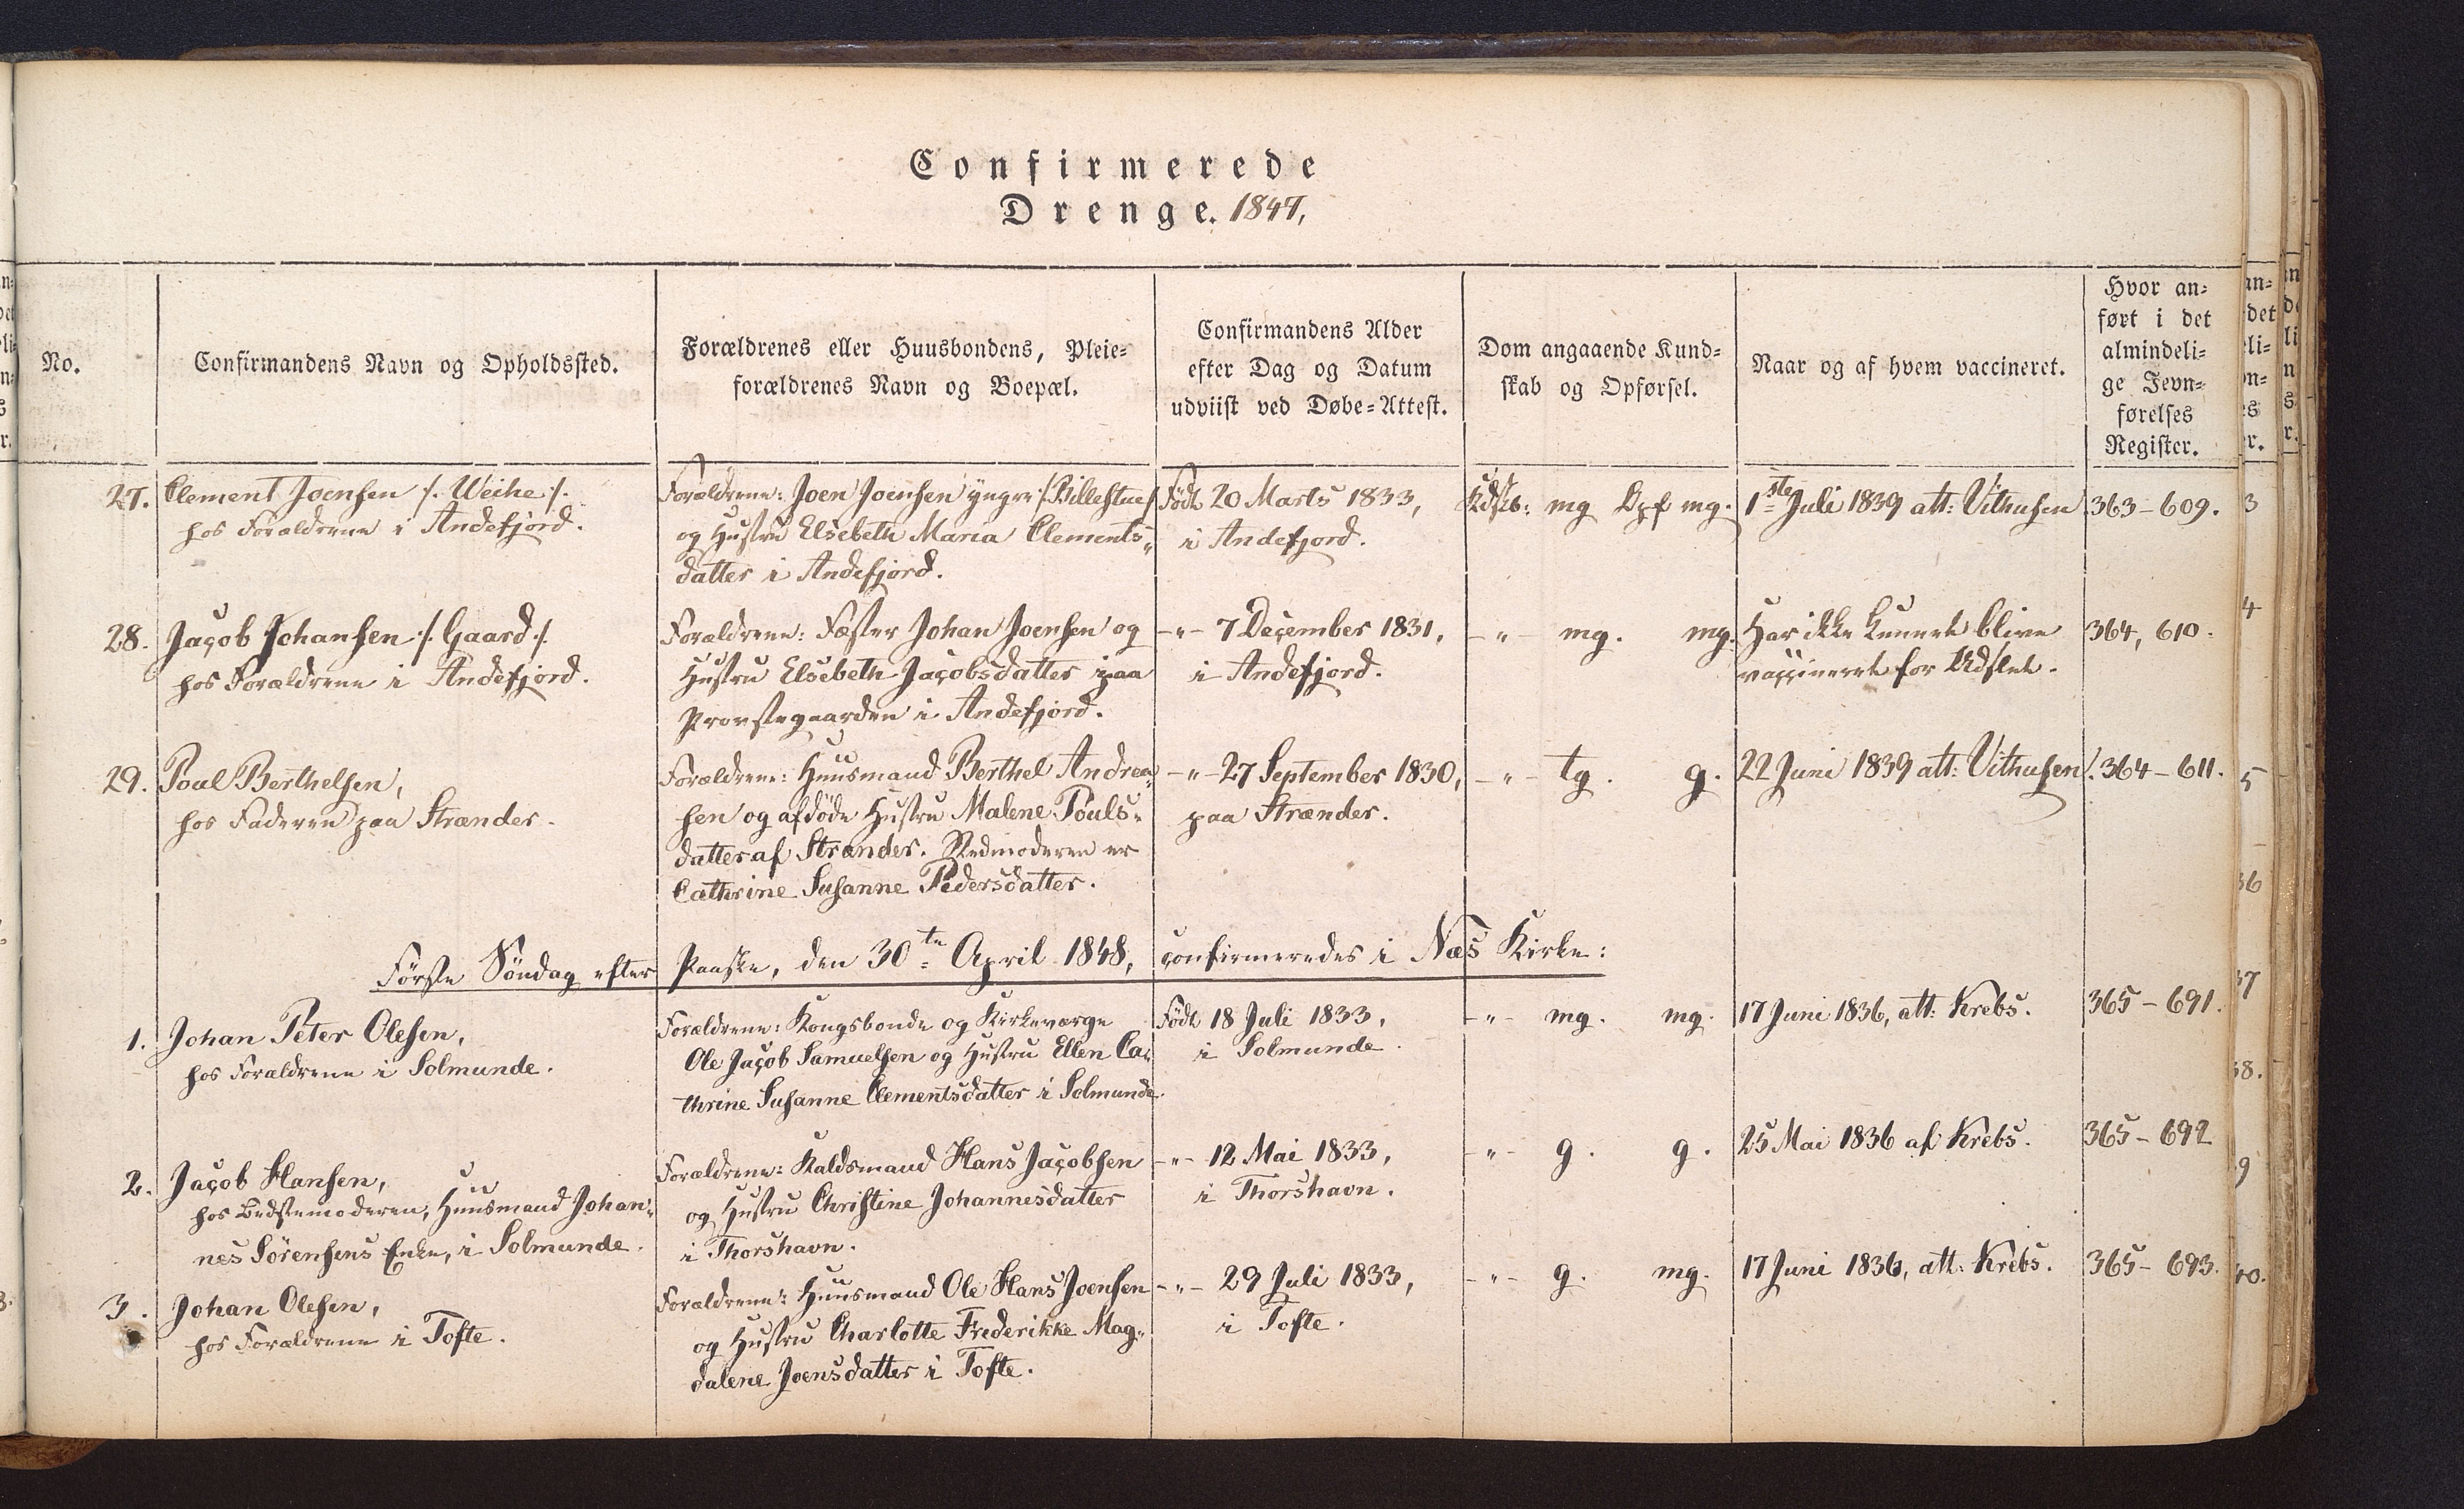 Confirmerede
Drenge. 1847,
No.
Confirmandens Navn og Opholdssted.
Forældrenes eller Huusbondens, Pleie-
forældrenes Navn og Boepæl.
Confirmandens Alder
efter Dag og Datum
udviist ved Døbe-Attest.
Dom angaaende Kund-
skab og Opførsel.
Naar og af hvem vaccineret.
Hvor an-
ført i det
almindeli-
ge Jevn-
førelses
Register.
27.
Clement Joensen /. Weihe /.
hos Forældrene i Andefjord.
Forældrene: Joen Joensen yngre /: Billestue /
og Hustru Elsebeth Maria Clements-
datter i Andefjord.
Født 20 Marts 1833,
i Andefjord.
Kdskb: mg Opf mg.
1ste Juli 1839 att: Vithusen
363-609.
28.
Jacob Johansen /. Gaard /.
hos Forældrene i Andefjord.
Forældrene: Fæster Johan Joensen og
Hustru Elsebeth Jacobsdatter paa
Provstegaarden i Andefjord.
-"- 7 December 1831,
i Andefjord.
-"- mg. mg.
Har ikke kunnet blive
vaccineret for Udslet.
364, 610.
29.
Poul Berthelsen,
hos Faderen paa Strænder.
Forældrene: Huusmand Berthel Andrea-
sen og afdøde Hustru Malene Pouls-
datter af Strænder. Stedmoderen er
Cathrine Susanne Pedersdatter.
-"- 27 September 1830,
paa Strænder.
-"- tg. g.
22 Juni 1839 att: Vithusen
364-611.
Første Søndag efter Paaske, den 30te April 1848, confirmeredes i Næs Kirke:
1.
Johan Peter Olesen,
hos Forældrene i Solmunde.
Forældrene: Kongsbonde og Kirkeværge
Ole Jacob Samuelsen og Hustru Ellen Ca-
thrine Susanne Clementsdatter i Solmunde.
Født 18 Juli 1833,
i Solmunde.
-"- mg. mg.
17 Juni 1836, att: Krebs.
365-691.
2.
Jacob Hansen,
hos Bedstemoderen, Huusmand Johan-
nes Sörensens Enke, i Solmunde.
Forældrene: Kaldsmand Hans Jacobsen
og Hustru Christine Johannesdatter
i Thorshavn.
-"- 12 Mai 1833,
i Thorshavn.
-"- g. g.
25 Mai 1836 af Krebs.
365-692
3.
Johan Olesen,
hos Forældrene i Tofte.
Forældrene: Huusmand Ole Hans Joensen
og Hustru Charlotte Frederikke Mag-
dalene Joensdatter i Tofte.
-"- 29 Juli 1833,
i Tofte.
-"- g. mg.
17 Juni 1836, att: Krebs.
365-693.